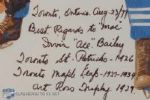 Toronto, Ontario Aug-23/79
Best Regards to "Mac"
Irvin "Ace" Bailey
Toronto St. Patricks - 1926
Toronto Maple Leafs - 1927-1934
Art Ross Trophy 1929.